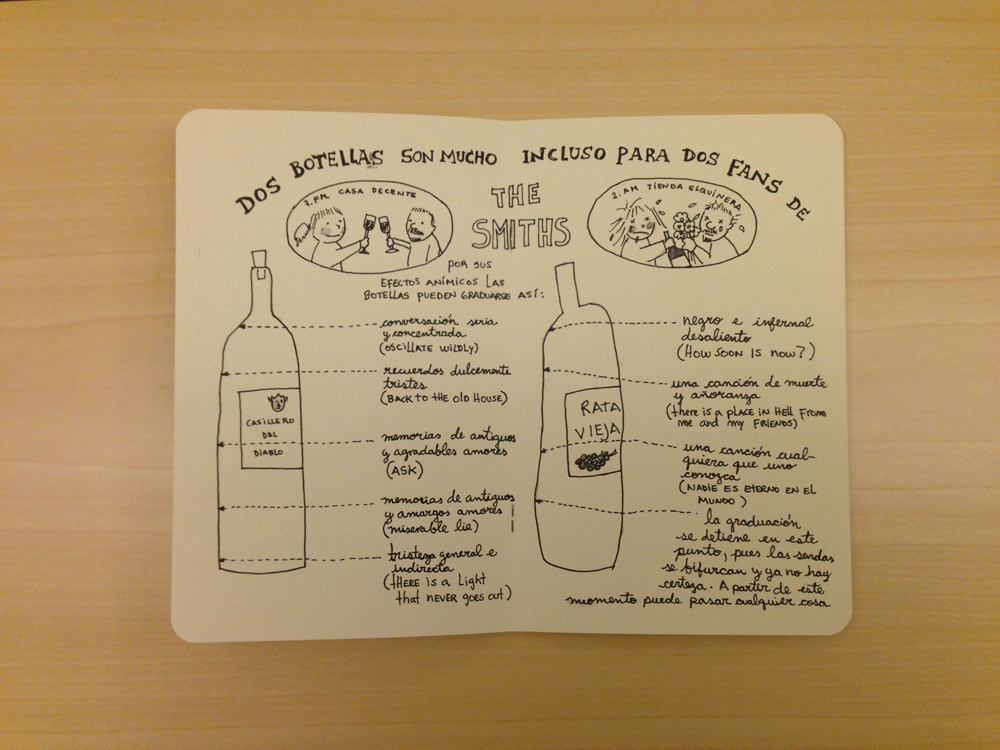 DOS BOTELLAS SON MUCHO INCLUSO PARA DOS FANS DE
THE
SMITHS
7. PM. CASA DECENTE
2. AM TIENDA ESQUINERA
POR SUS
EFECTOS ANÍMICOS LAS
BOTELLAS PUEDEN GRADUARSE ASÍ:
conversación seria
y concentrada
(OSCILLATE WILDLY)
recuerdos dulcemente
tristes
(BACK TO the OLD HOUSE)
memorias de antiguos
y agradables amores
(ASK)
memorias de antiguos
y amargos amores
(miserable lie)
tristeza general e
indirecta
(tHERE is a Light
that NEVER goes out)
CASILLERO
DEL
DIABLO
negro e infernal
desaliento
(HOW SOON IS NOW?)
una canción de muerte
y añoranza
(there is a PLACE IN HELL FROM
me and my FRIENDS)
una canción cual-
quiera que uno
conozca
(NADIE ES ETERNO EN EL
MUNDO)
la graduación
se detiene en este
punto, pues las sendas
se bifurcan y ya no hay
certeza. A partir de este
momento puede pasar cualquier cosa
RATA
VIEJA